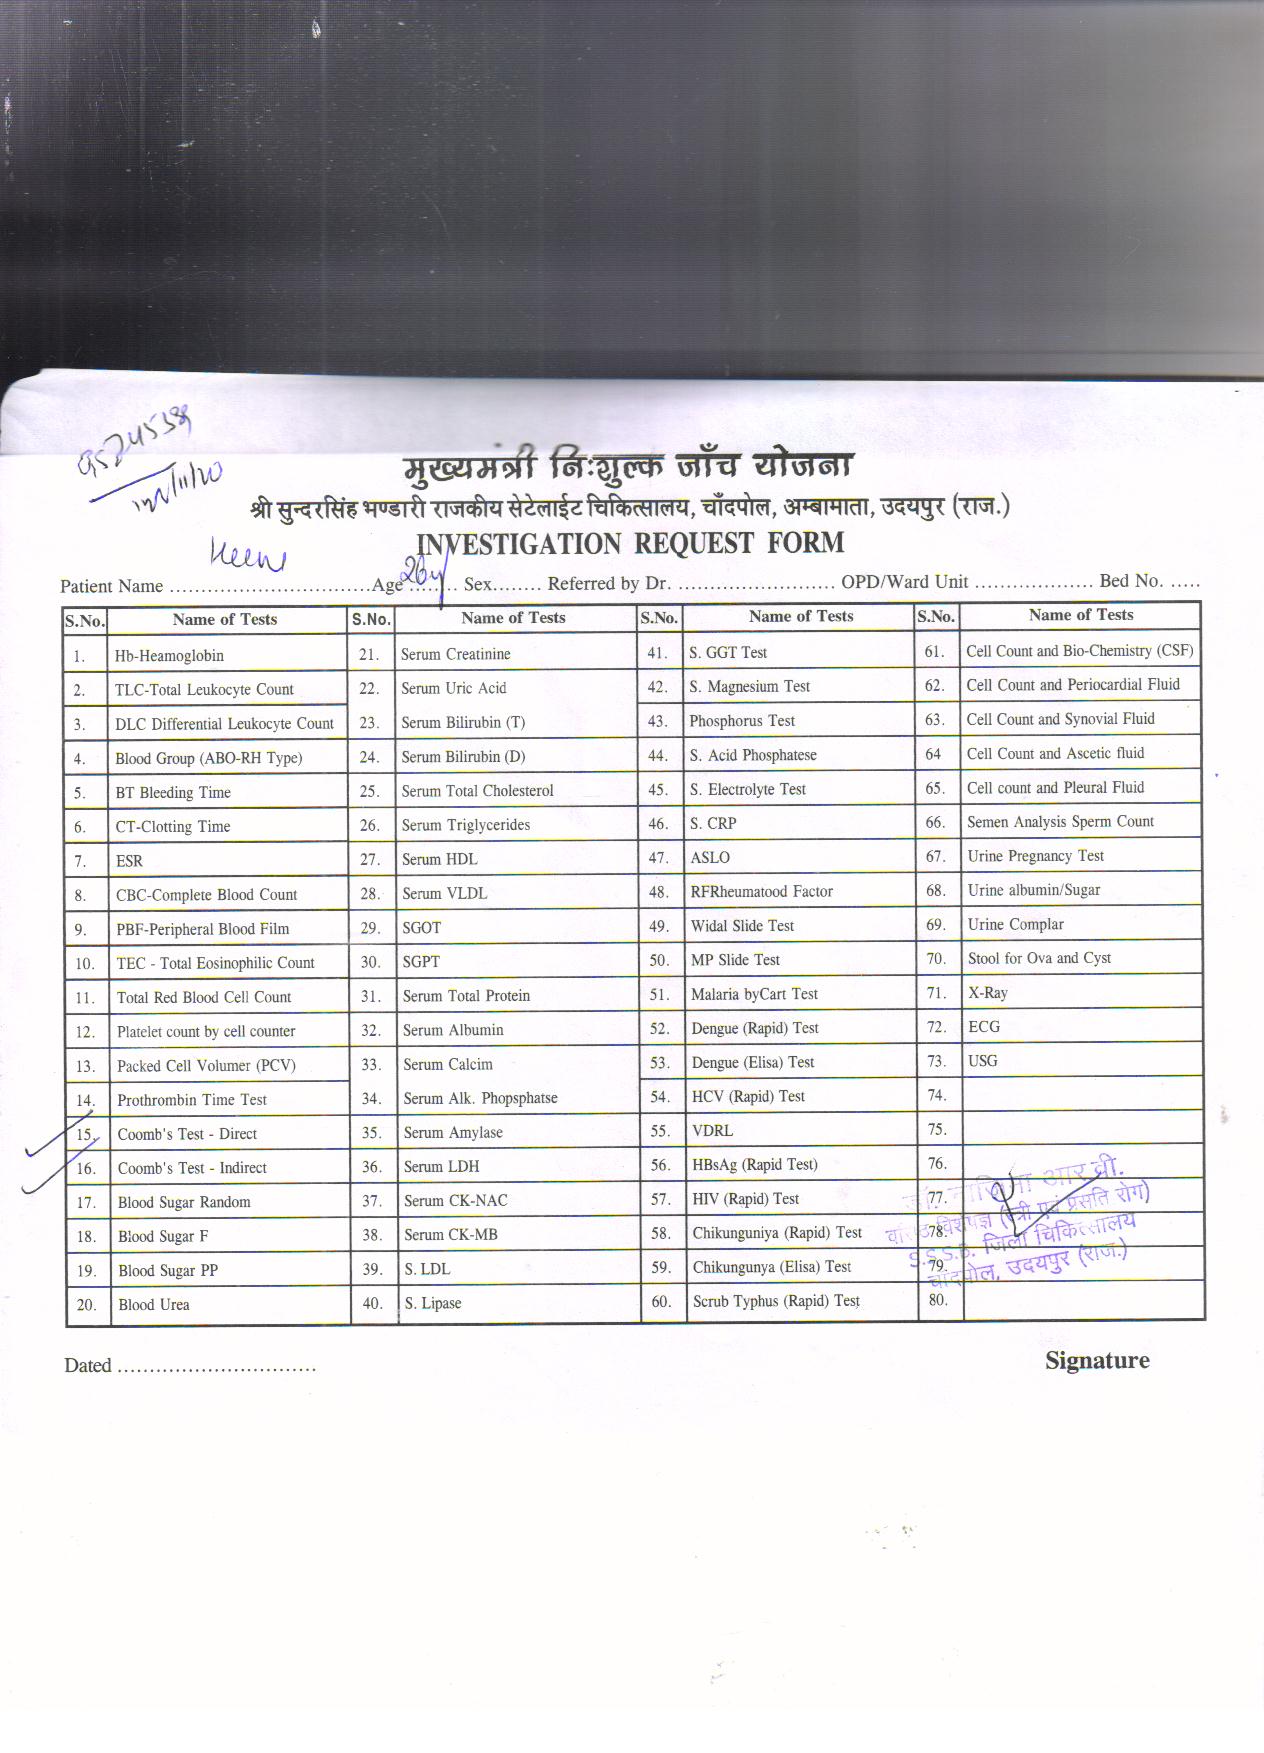 9574538
मुख्यमत्री निःशुल्क जाँच योजना
श्री सुन्दरसिंह भण्डारी राजकीय सेटेलाईट चिकित्सालय, चाँदपोल, अम्बामाता, उदयपुर (राज.)
INVESTIGATION REQUEST FORM
Patient Name ................................Age 26y Sex........ Referred by Dr. ......................... OPD/Ward Unit ................... Bed No. .....
S.No. Name of Tests S.No. Name of Tests S.No. Name of Tests S.No. Name of Tests
1. Hb-Heamoglobin 21. Serum Creatinine 41. S. GGT Test 61. Cell Count and Bio-Chemistry (CSF)
2. TLC-Total Leukocyte Count 22. Serum Uric Acid 42. S. Magnesium Test 62. Cell Count and Periocardial Fluid
3. DLC Differential Leukocyte Count 23. Serum Bilirubin (T) 43. Phosphorus Test 63. Cell Count and Synovial Fluid
4. Blood Group (ABO-RH Type) 24. Serum Bilirubin (D) 44. S. Acid Phosphatese 64 Cell Count and Ascetic fluid
5. BT Bleeding Time 25. Serum Total Cholesterol 45. S. Electrolyte Test 65. Cell count and Pleural Fluid
6. CT-Clotting Time 26. Serum Triglycerides 46. S. CRP 66. Semen Analysis Sperm Count
7. ESR 27. Serum HDL 47. ASLO 67. Urine Pregnancy Test
8. CBC-Complete Blood Count 28. Serum VLDL 48. RFRheumatood Factor 68. Urine albumin/Sugar
9. PBF-Peripheral Blood Film 29. SGOT 49. Widal Slide Test 69. Urine Complar
10. TEC - Total Eosinophilic Count 30. SGPT 50. MP Slide Test 70. Stool for Ova and Cyst
11. Total Red Blood Cell Count 31. Serum Total Protein 51. Malaria byCart Test 71. X-Ray
12. Platelet count by cell counter 32. Serum Albumin 52. Dengue (Rapid) Test 72. ECG
13. Packed Cell Volumer (PCV) 33. Serum Calcim 53. Dengue (Elisa) Test 73. USG
14. Prothrombin Time Test 34. Serum Alk. Phopsphatse 54. HCV (Rapid) Test 74.
15. Coomb's Test - Direct 35. Serum Amylase 55. VDRL 75.
16. Coomb's Test - Indirect 36. Serum LDH 56. HBsAg (Rapid Test) 76.
17. Blood Sugar Random 37. Serum CK-NAC 57. HIV (Rapid) Test 77.
18. Blood Sugar F 38. Serum CK-MB 58. Chikunguniya (Rapid) Test 78.
19. Blood Sugar PP 39. S. LDL 59. Chikungunya (Elisa) Test 79.
20. Blood Urea 40. S. Lipase 60. Scrub Typhus (Rapid) Test 80.
आर.वी.
(स्त्री एवं प्रसूति रोग)
S.S.S.B. जिला चिकित्सालय
चांदपोल, उदयपुर (राज.)
Dated ............................... Signature